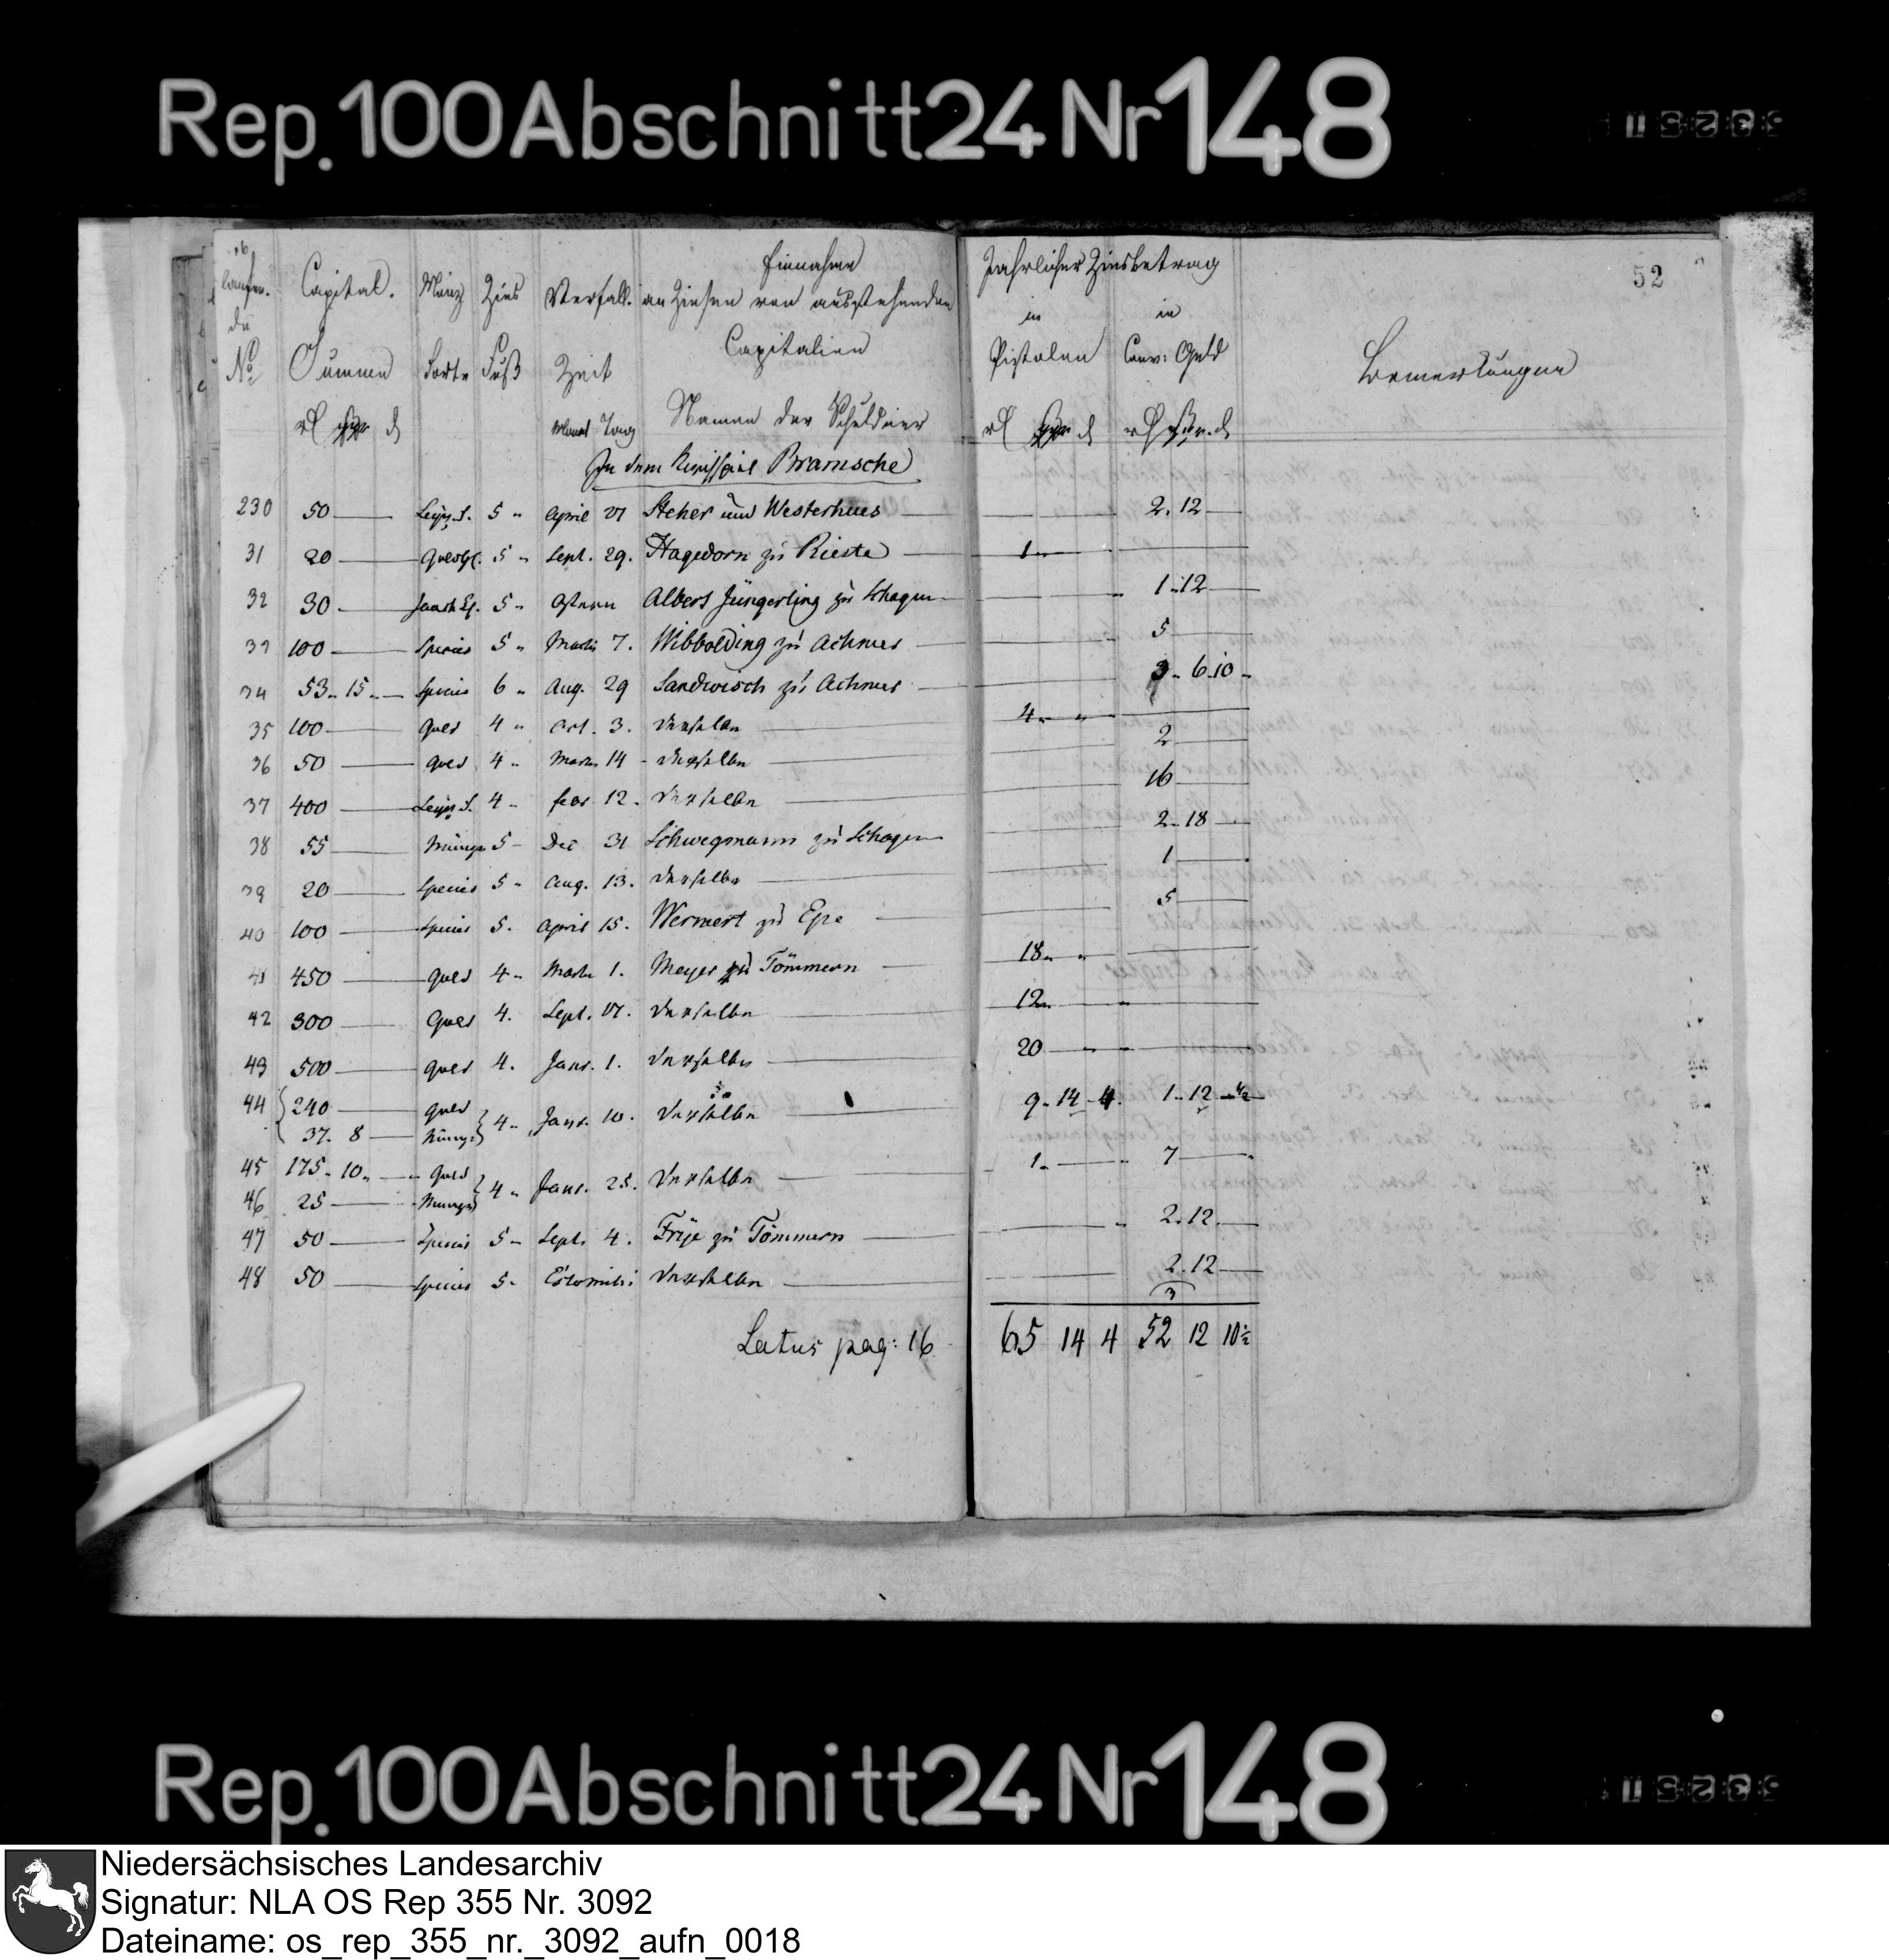 Rep. 100 Abschnitt 24 Nr 148
52
16
laufen. Capital. Münz Zins Verfall. Einnahme
de an Zinsen von ausstehenden
No Summen Sorte Fuß Zeit Capitalien
Monat Tag Namen der Schuldner
Jahrlicher Zinsbetrag
in in
Pistolen Conv: Geld
Bemerkungen
In dem Kirchspiel Bramsche
230 50 5 April 21 Steher und Westerhues 2. 12
31 20 5 Sept. 29. Hagedorn zu Rieste 1
32 30 5 Ostern Albert Jüngerling zu Schagen 1. 12
33 100 Species 5 Martii 7. Wibbolding zu Achmer 5
34 53. 15 Species 6 Aug. 29 Sandwisch zu Achmer 3. 6. 10
35 100 Gold 4 Oct. 3. Derselbe 4
36 50 Gold 4 Martii 14 Derselbe 2
37 400 4 febr 12. Derselbe 16
38 55 Münze 5 Dec 31 Schwegmann zu Schagen 2. 18
39 20 Species 5 Aug. 13. Derselbe 1
40 100 Species 5. April 15. Wermert zu Epe 5
41 450 Gold 4 Martii 1. Meyer zu Tömmern 18
42 300 Gold 4. Sept. 21. Derselbe 12
43 500 Gold 4. Janr. 1. Derselbe 20
44 240 Gold
37. 8 Münze 4 Janr. 10. Derselbe 9. 14 4. 1. 12 ½
45 175. 10 Gold
46 25 Münze 4 Janr. 25. Derselbe 1. 7
47 50 Species 5 Sept. 4. Frije zu Tömmern 2. 12
48 50 Species 5. Estomihi Derselbe 2. 12
3
Latus pag: 16 65 14 4 52 12 10½
Rep. 100 Abschnitt 24 Nr 148
Niedersächsisches Landesarchiv
Signatur: NLA OS Rep 355 Nr. 3092
Dateiname: os_rep_355_nr._3092_aufn_0018